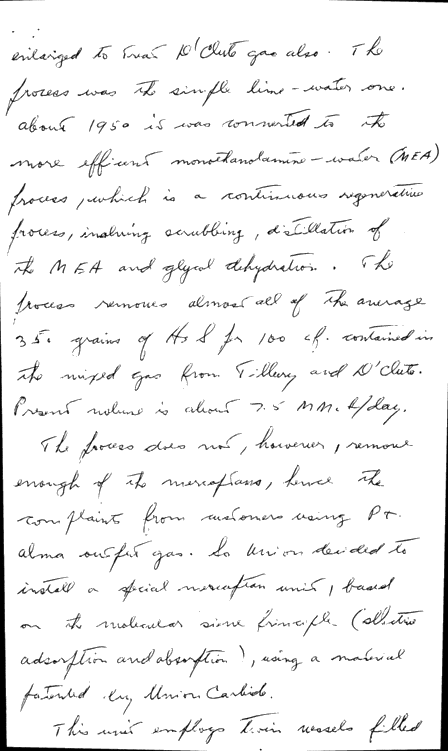 enlarged to treat D'Clute gas also. The
process was the simple lime-water one.
About 1950 it was converted to the
more efficient monoethanolamine-water (MEA)
process, which is a continuous regenerative
process, involving scrubbing, distillation of
the MEA and glycol dehydration. The
process removes almost all of the average
350 grains of H2S per 100 cf. contained in
the mixed gas from Tillbury and D'Clute.
Present volume is about 7.5 MM. cf/day.
The process does not, however, remove
enough of the mercaptans, hence the
complaints from customers using Pt.
Alma outfit gas. So Union decided to
install a special mercaptan unit, based
on the molecular sieve principle (selective
adsorption and absorption), using a material
patented by Union Carbide.
This unit employs twin vessels filled